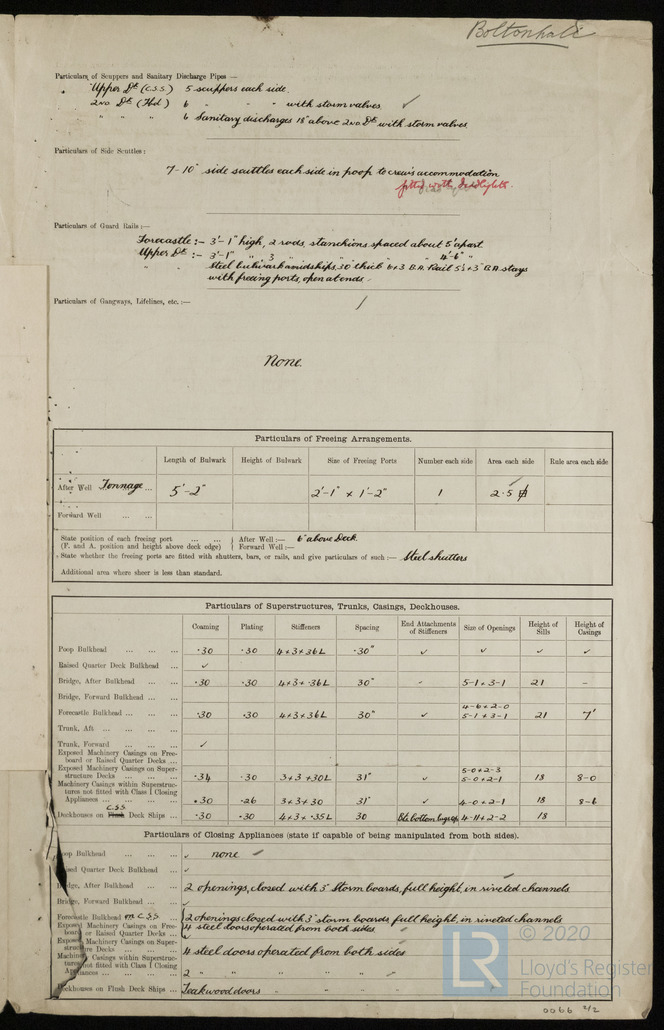 Boltonhall
Particulars of Scuppers and Sanitary Discharge Pipes —
Upper Dk (C.S.S.) 5 scuppers each side.
2nd Dk (Fbd) 6 " " " with storm valves ✓
" " " 6 Sanitary discharges 18" above 2nd Dk with storm valves
Particulars of Side Scuttles :
7 - 10" side scuttles each side in poop to crew's accommodation
fitted with deadlights.
Particulars of Guard Rails :—
Forecastle :- 3'-1" high, 2 rods, stanchions spaced about 5' apart
Upper Dk :- 3'-1" " 3 " " " 4'-6" "
" Steel bulwark amidships, 30" thick 6+3 B.A. Rail 5½+3 B.A. stays
with freeing ports, open at ends.
Particulars of Gangways, Lifelines, etc. :—
None.
Particulars of Freeing Arrangements.
Length of Bulwark Height of Bulwark Size of Freeing Ports Number each side Area each side Rule area each side
After Well Tonnage ... 5'-2" 2'-1" x 1'-2" 1 2.5
Forward Well ... ...
State position of each freeing port ... ... } After Well :— 6" above Deck
(F. and A. position and height above deck edge) } Forward Well :—
State whether the freeing ports are fitted with shutters, bars, or rails, and give particulars of such :— Steel shutters
Additional area where sheer is less than standard.
Particulars of Superstructures, Trunks, Casings, Deckhouses.
Coaming Plating Stiffeners Spacing End Attachments of Stiffeners Size of Openings Height of Sills Height of Casings
Poop Bulkhead ... ... ... .30 .30 4+3+36L .30" ✓ ✓ ✓ ✓
Raised Quarter Deck Bulkhead ... ✓
Bridge, After Bulkhead ... ... .30 .30 4+3+.36L 30" - 5-1+3-1 21 -
Bridge, Forward Bulkhead ... ...
4-6+2-0
Forecastle Bulkhead ... ... ... .30 .30 4+3+36L 30" ✓ 5-1+3-1 21 7'
Trunk, Aft ... ... ... ...
Trunk, Forward ... ... ... ✓
Exposed Machinery Casings on Free-
board or Raised Quarter Decks ...
Exposed Machinery Casings on Super- 5-0+2-3
structure Decks ... ... ... .34 .30 3+3+30L 31" ✓ 5-0+2-1 18 8-0
Machinery Casings within Superstruc-
tures not fitted with Class I Closing
Appliances ... ... ... ... .30 .26 3+3+30 31" ✓ 4-0+2-1 18 8-6
C.S.S.
Deckhouses on Flush Deck Ships ... .30 .30 4+3+.35L 30 4-11+2-2 18
Particulars of Closing Appliances (state if capable of being manipulated from both sides).
oop Bulkhead ... ... ... ✓ none
ised Quarter Deck Bulkhead ... ✓
dge, After Bulkhead ... ... 2 openings, closed with 3" storm boards, full height, in riveted channels
Bridge, Forward Bulkhead ... ... ✓
Forecastle Bulkhead on C.S.S. { 2 openings closed with 3" storm boards, full height, in riveted channels
Exposed Machinery Casings on Free- 4 steel doors operated from both sides
board or Raised Quarter Decks ... ✓
Exposed Machinery Casings on Super-
structure Decks ... ... ... 4 steel doors operated from both sides
Machinery Casings within Superstruc-
tures not fitted with Class I Closing
Appliances ... ... ... ... 2 " " " " "
eckhouses on Flush Deck Ships ... Teakwood doors - " - " "
© 2020
LR
Lloyd's Register
Foundation
0066 2/2